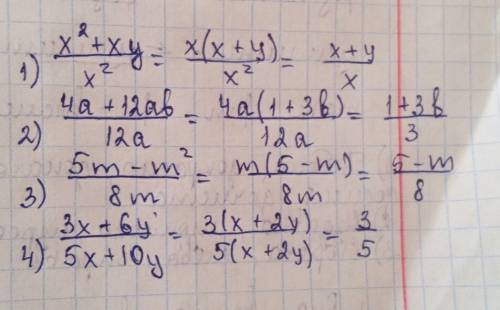 1) (x² + xy)/x² = x(x + y)/x² = (x+y)/x
2) (4a + 12ab)/12a = 4a(1 + 3b)/12a = (1+3b)/3
3) (5m − m²)/8m = m(5 − m)/8m = (5−m)/8
4) (3x + 6y)/(5x + 10y) = 3(x + 2y)/5(x + 2y) = 3/5